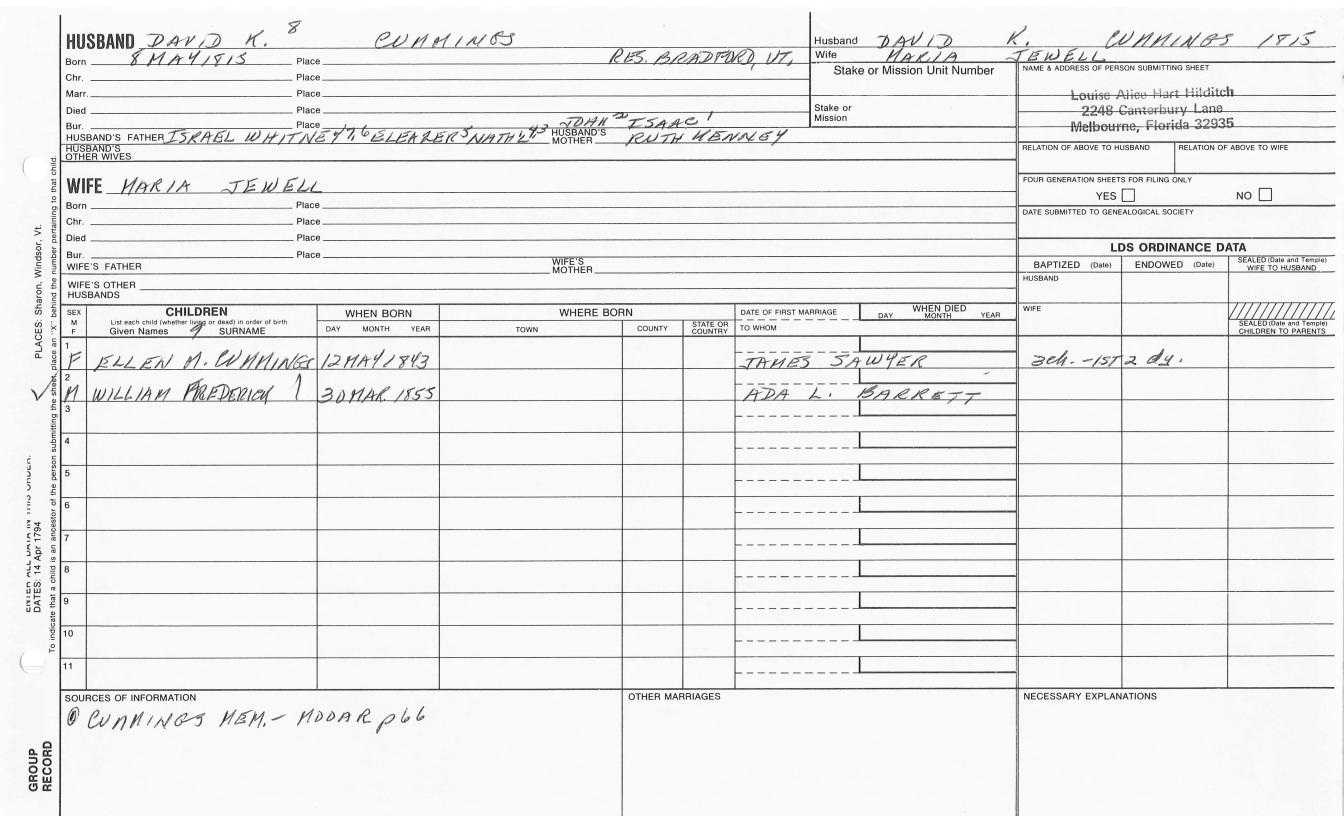 HUSBAND DAVID K. 8 CUMMINGS
Born 8 MAY 1815 Place RES. BRADFORD, VT,
Chr. Place
Marr. Place
Died Place
Bur. Place
JOHN 2 ISAAC 1
HUSBAND'S FATHER ISRAEL WHITNEY 7, 6 ELEAZER 5 NATHL 4,3 HUSBAND'S MOTHER RUTH KENNEY
HUSBAND'S OTHER WIVES
Husband DAVID K. CUMMINGS 1815
Wife MARIA JEWELL
Stake or Mission Unit Number
Stake or Mission
NAME & ADDRESS OF PERSON SUBMITTING SHEET
Louise Alice Hart Hilditch
2248 Canterbury Lane
Melbourne, Florida 32935
RELATION OF ABOVE TO HUSBAND RELATION OF ABOVE TO WIFE
FOUR GENERATION SHEETS FOR FILING ONLY
YES NO
DATE SUBMITTED TO GENEALOGICAL SOCIETY
WIFE MARIA JEWELL
Born Place
Chr. Place
Died Place
Bur. Place
WIFE'S FATHER WIFE'S MOTHER
WIFE'S OTHER HUSBANDS
LDS ORDINANCE DATA
BAPTIZED (Date) ENDOWED (Date) SEALED (Date and Temple) WIFE TO HUSBAND
HUSBAND
WIFE
SEALED (Date and Temple) CHILDREN TO PARENTS
SEX M F
CHILDREN
List each child (whether living or dead) in order of birth
Given Names 9 SURNAME
WHEN BORN
DAY MONTH YEAR
WHERE BORN
TOWN COUNTY STATE OR COUNTRY
DATE OF FIRST MARRIAGE
TO WHOM
WHEN DIED
DAY MONTH YEAR
1
F ELLEN M. CUMMINGS 12 MAY 1843 JAMES SAWYER 3ch. - 1ST 2 dy.
2
M WILLIAM FREDERICK 30 MAR 1855 ADA L. BARRETT
3
4
5
6
7
8
9
10
11
SOURCES OF INFORMATION
① CUMMINGS MEM. - MOOAR p66
OTHER MARRIAGES
NECESSARY EXPLANATIONS
PLACES: Sharon, Windsor, Vt.
DATES: 14 Apr 1794
To indicate that a child is an ancestor of the person submitting the sheet, place an "X" behind the number pertaining to that child.
GROUP RECORD